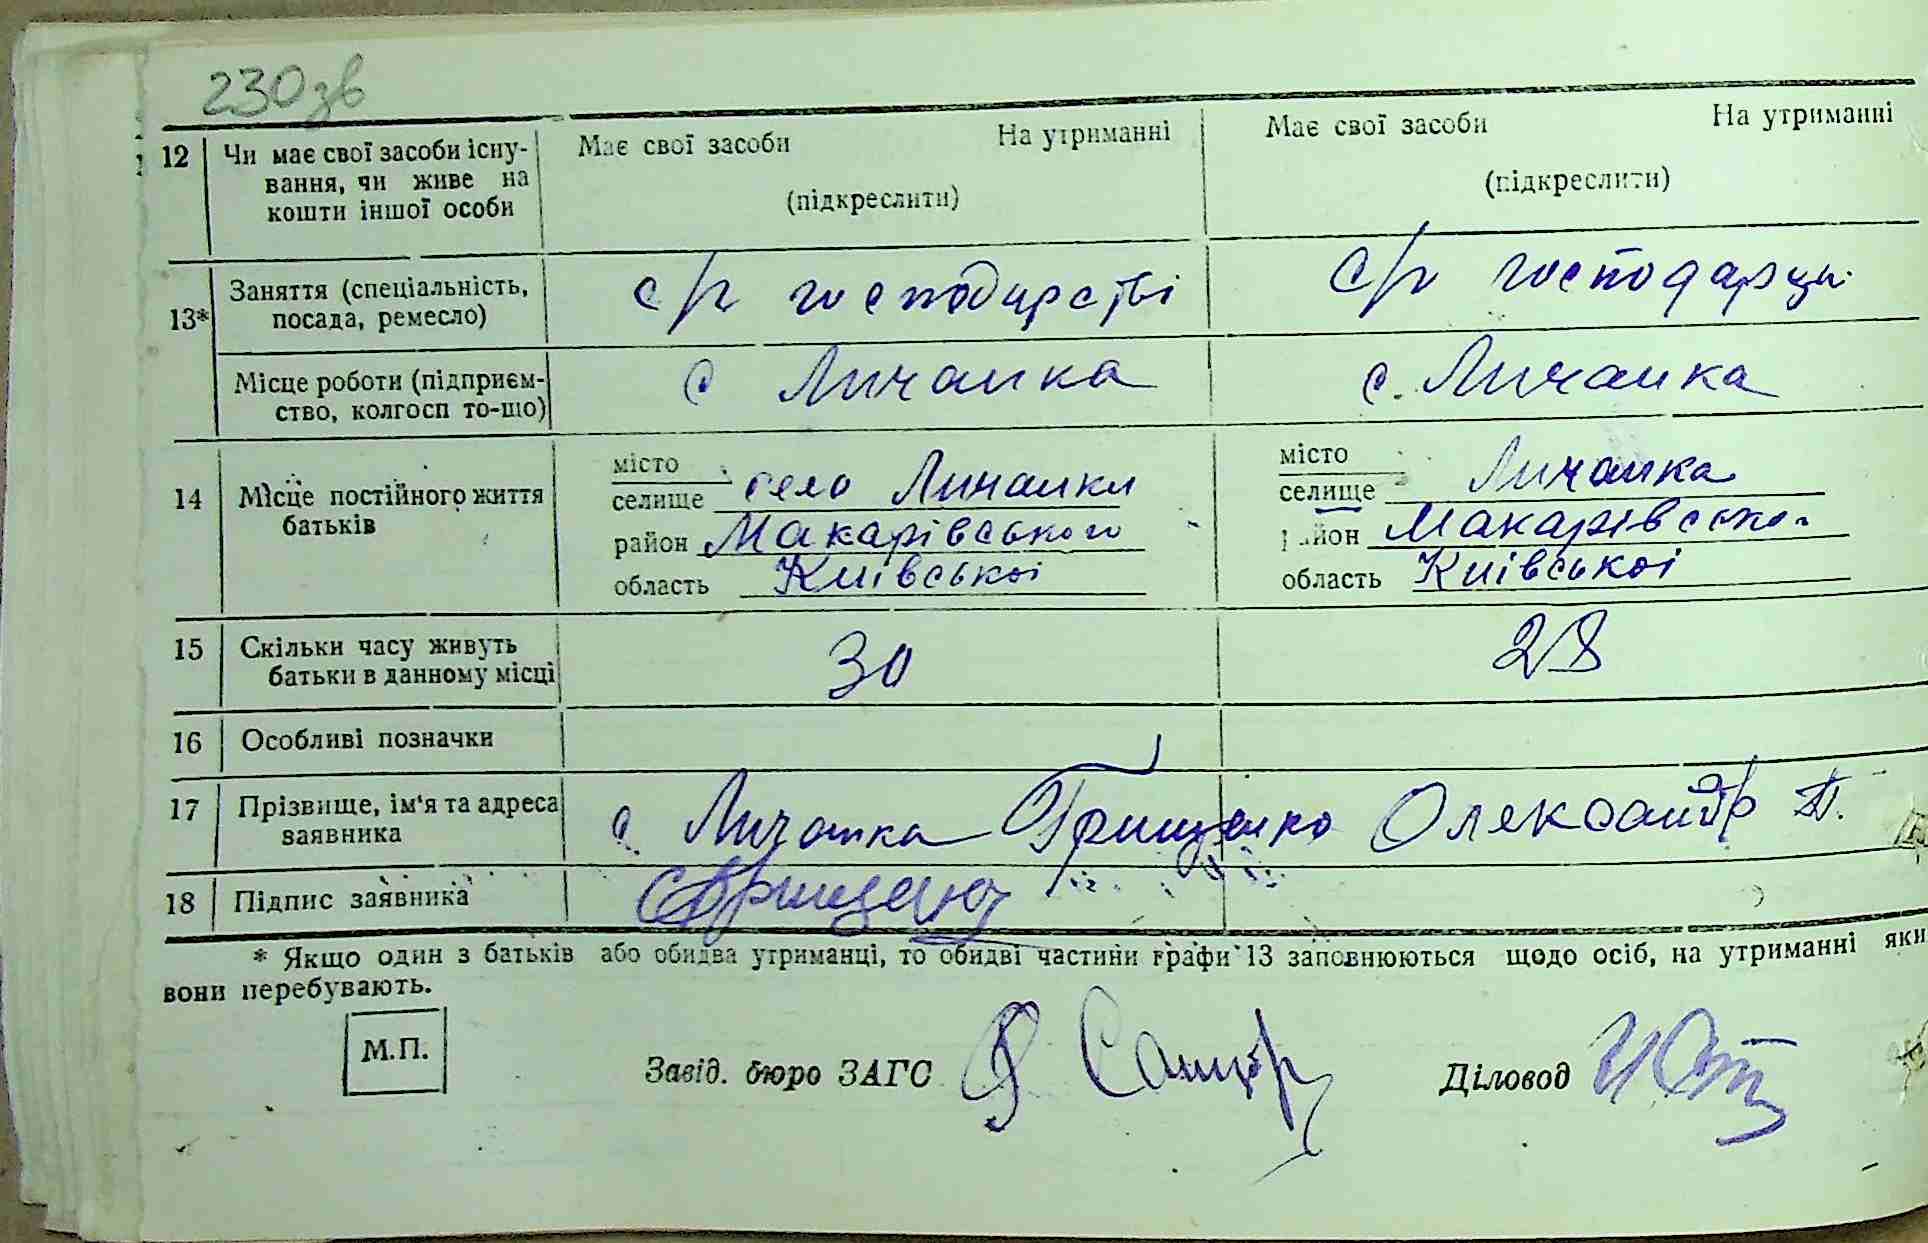 230 зв
12 Чи має свої засоби існу- Має свої засоби На утриманні Має свої засоби На утриманні
вання, чи живе на
кошти іншої особи (підкреслити) (підкреслити)
13* Заняття (спеціальність, посада, ремесло) с/г господарстві с/г господарци
Місце роботи (підприєм-
ство, колгосп то-що) с Личанка с. Личанка
14 Місце постійного життя
батьків
місто місто
селище село Личанки селище Личанка
район Макарівського район Макарівсько
область Київської область Київської
15 Скільки часу живуть
батьки в данному місці 30 28
16 Особливі позначки
17 Прізвище, ім'я та адреса
заявника с Личанка Грищенко Олександр П.
18 Підпис заявника
* Якщо один з батьків або обидва утриманці, то обидві частини графи 13 заповнюються щодо осіб, на утриманні яки
вони перебувають.
М.П. Завід. бюро ЗАГС Діловод